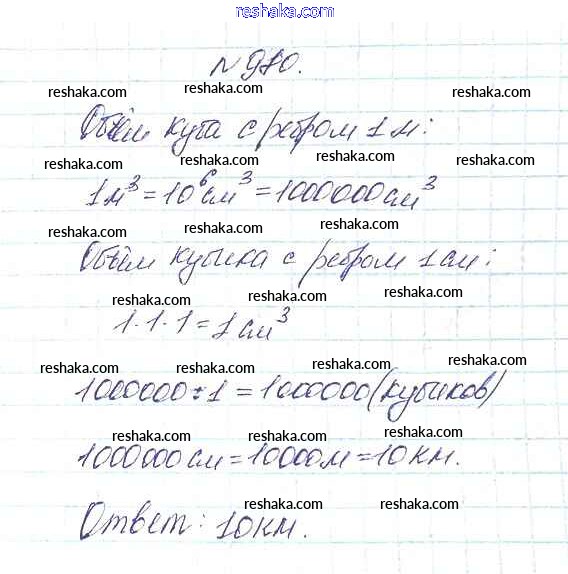 reshaka.com
№980.
reshaka.com reshaka.com reshaka.com
Объём куба с ребром 1 м:
reshaka.com reshaka.com reshaka.com
1 м³ = 10⁶ см³ = 1000000 см³
reshaka.com reshaka.com reshaka.com
Объём кубика с ребром 1 см:
reshaka.com reshaka.com reshaka.com
1·1·1 = 1 см³
reshaka.com reshaka.com reshaka.com
1000000 : 1 = 1000000 (кубиков)
reshaka.com reshaka.com reshaka.com
1000000 см = 10000 м = 10 км.
reshaka.com reshaka.com reshaka.com
Ответ: 10 км.